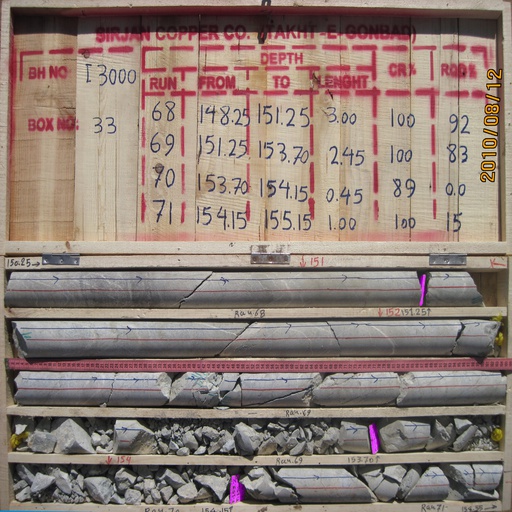 SIRJAN COPPER CO. (TAKHT-E-GONBAD)
BH NO: I 3000
BOX NO: 33
DEPTH
RUN FROM TO LENGHT CR% RQD%
68 148.25 151.25 3.00 100 92
69 151.25 153.70 2.45 100 83
70 153.70 154.15 0.45 89 0.0
71 154.15 155.15 1.00 100 15
2010/08/12
150.25 → ↓151
Run 68 ↓152 151.25↑
Run 69
↓154 Run 69 153.70↑
Run 70 154.15↑ Run 71